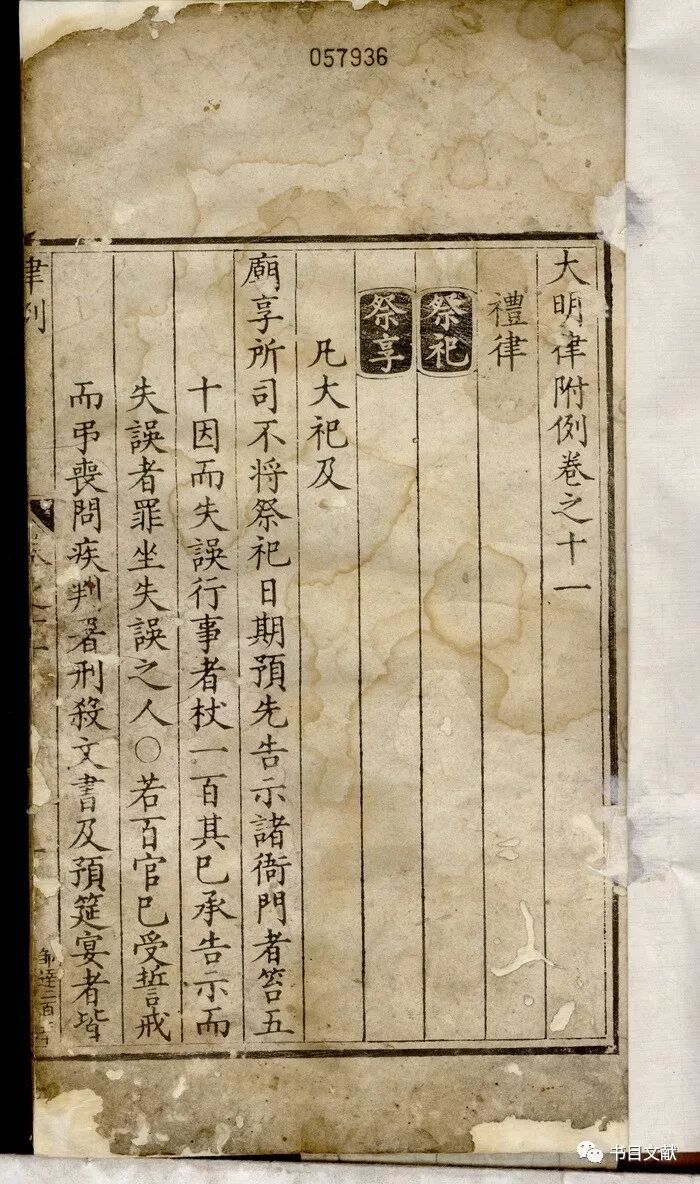 057936
大明律附例卷之十一
禮律
祭祀
祭享
凡大祀及
廟享所司不將祭祀日期預先告示諸衙門者笞五
十因而失誤行事者杖一百其巳承告示而
失誤者罪坐失誤之人○若百官巳受誓戒
而弔喪問疾判署刑殺文書及預筵宴者皆
律例
卷之十一
书目文献